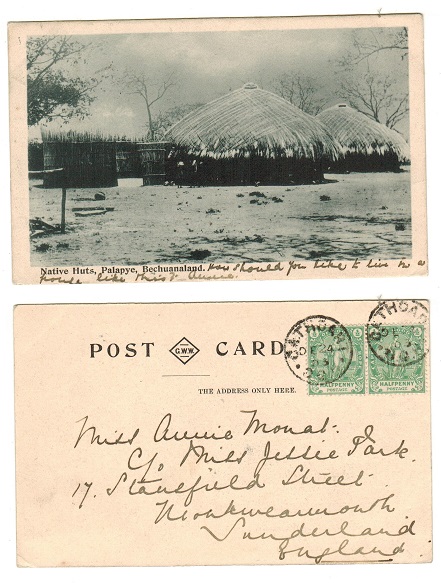 Native Huts, Palapye, Bechuanaland. How should you like to live in a
house like this? Annie.
POST CARD
G.W.W.
THE ADDRESS ONLY HERE.
HALFPENNY HALFPENNY
POSTAGE POSTAGE
DE 24
Miss Annie Monat.
C/o Miss Jessie Park.
17. Stansfield Street.
Monkwearmouth
Sunderland
England.